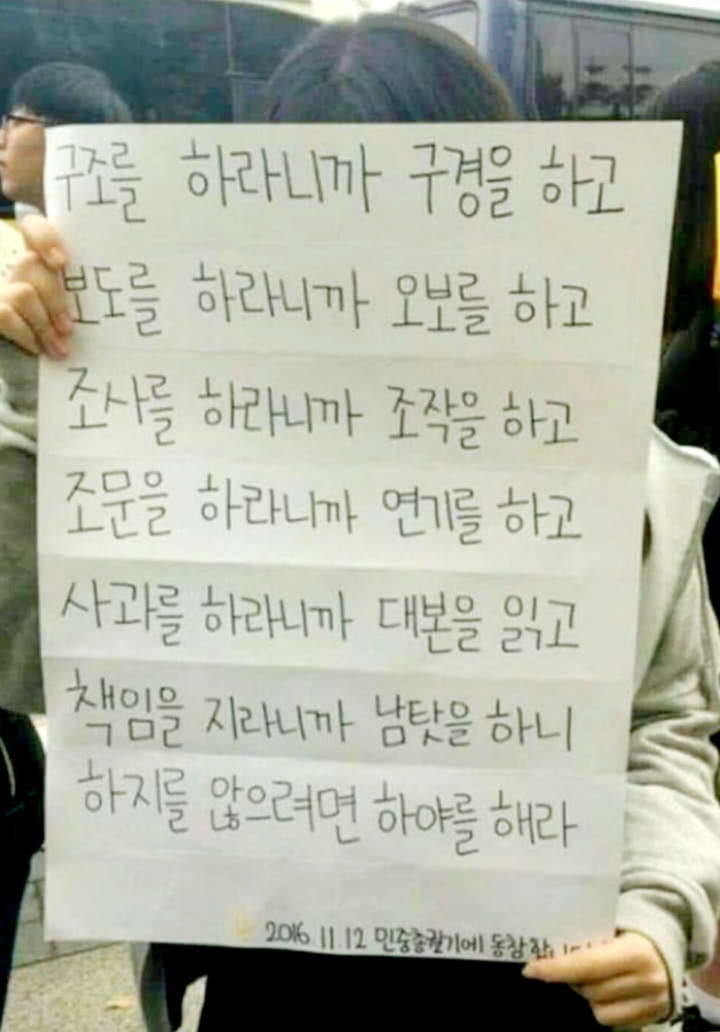 구조를 하라니까 구경을 하고
보도를 하라니까 오보를 하고
조사를 하라니까 조작을 하고
조문을 하라니까 연기를 하고
사과를 하라니까 대본을 읽고
책임을 지라니까 남탓을 하니
하지를 않으려면 하야를 해라
2016.11.12 민중총궐기에